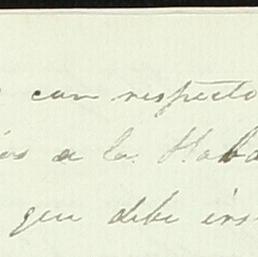 con respecto
a la Haba
que debe ins